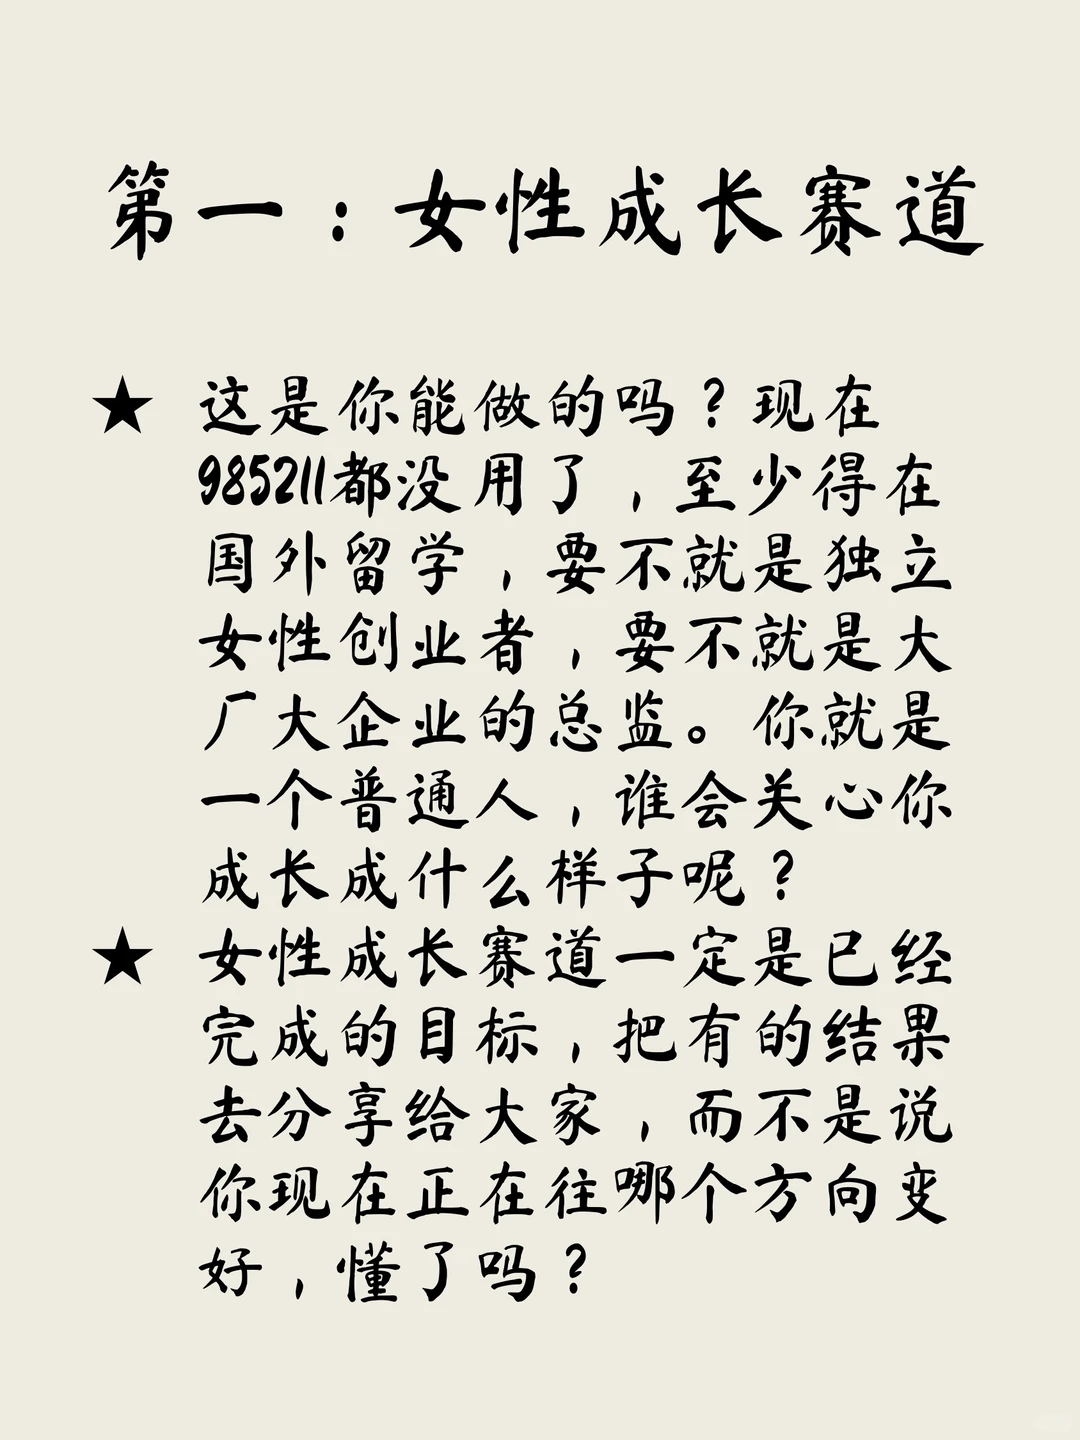 第一：女性成长赛道
★ 这是你能做的吗？现在
985211都没用了，至少得在
国外留学，要不就是独立
女性创业者，要不就是大
厂大企业的总监。你就是
一个普通人，谁会关心你
成长成什么样子呢？
★ 女性成长赛道一定是已经
完成的目标，把有的结果
去分享给大家，而不是说
你现在正在往哪个方向变
好，懂了吗？